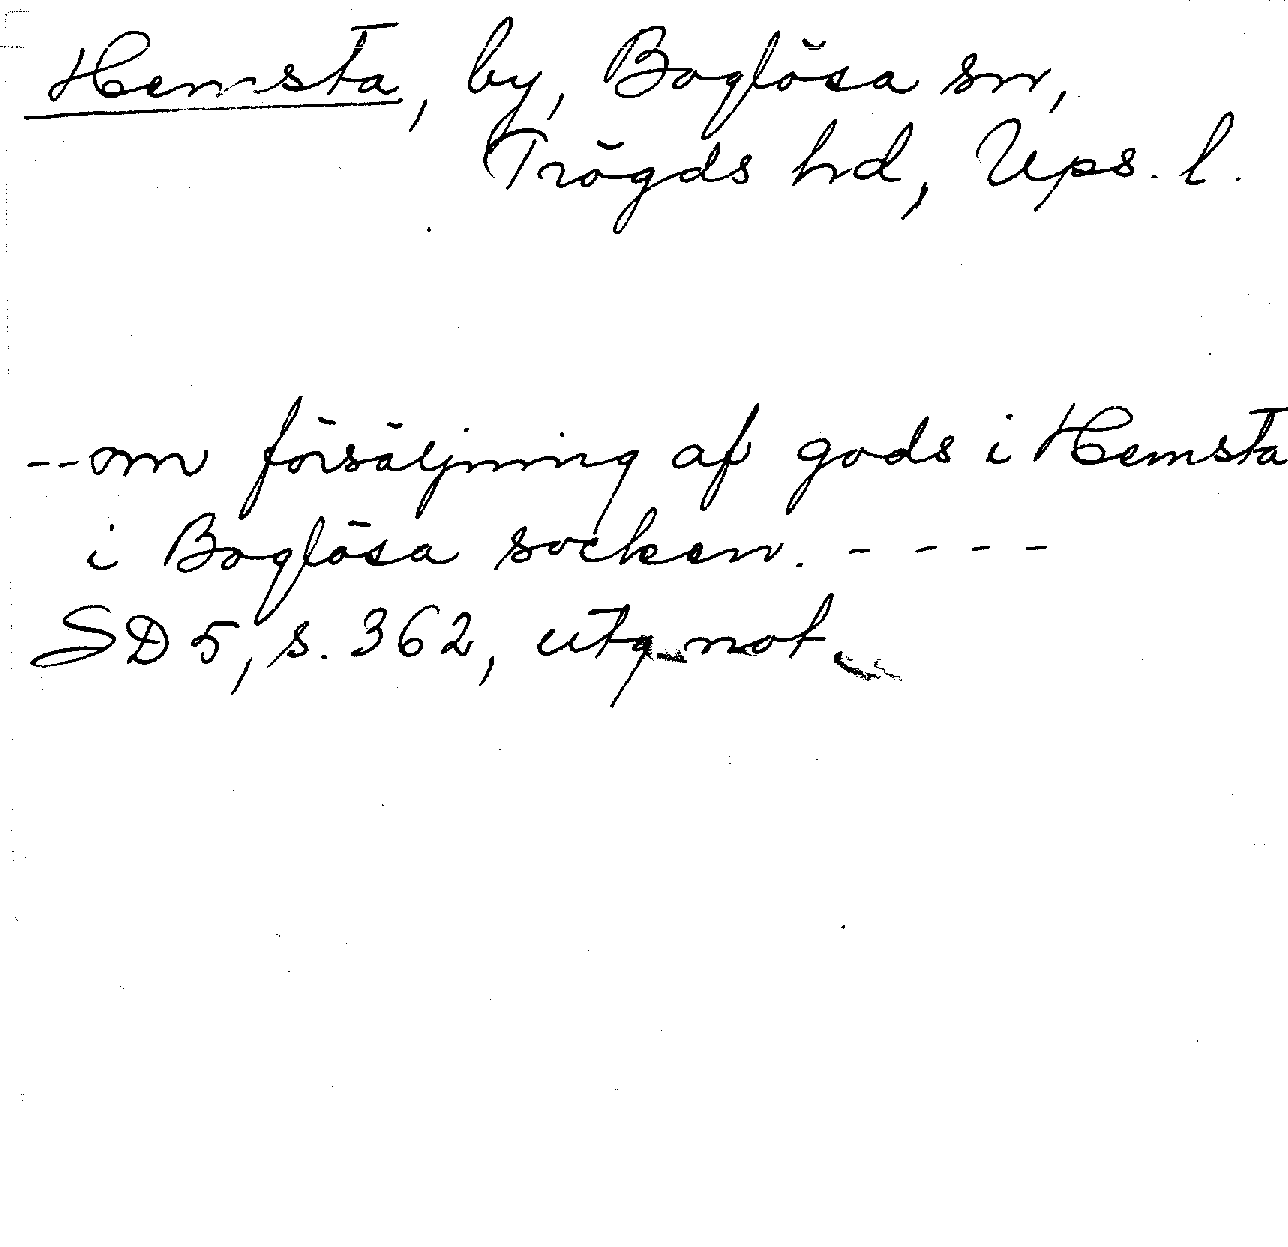 Hemsta, by, Boglösa sn,
Trögds hd, Ups. l.
--om försäljning af gods i Hemsta
i Boglösa socken. ----
SD 5, s. 362, utg. not.